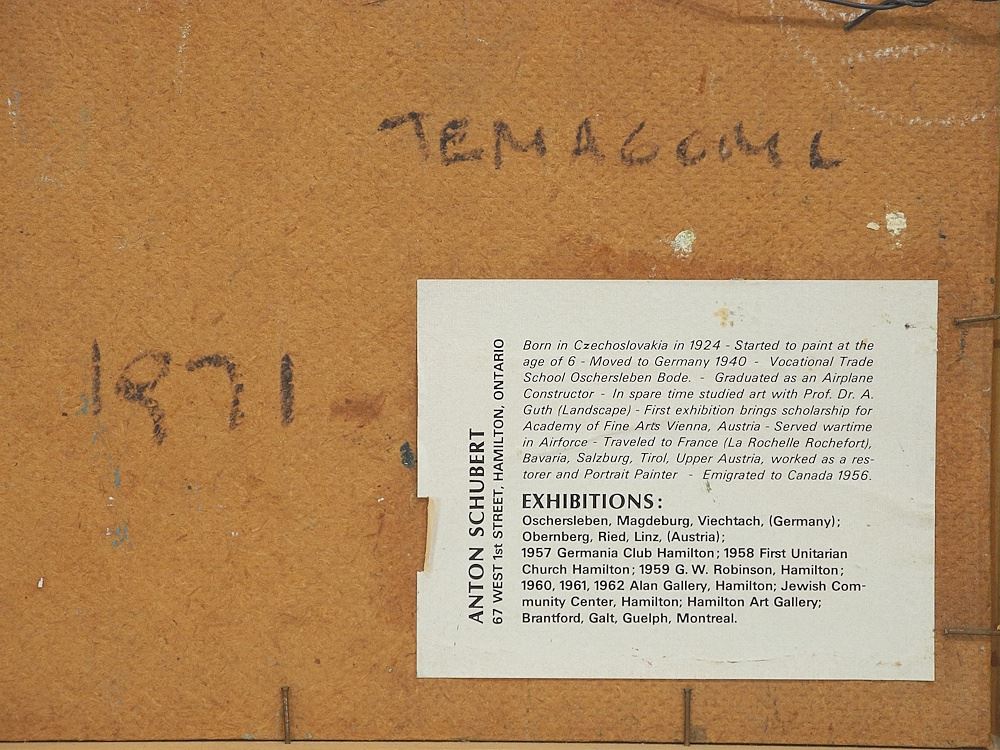 TEMAGAMI
1971
ANTON SCHUBERT
67 WEST 1st STREET, HAMILTON, ONTARIO
Born in Czechoslovakia in 1924 - Started to paint at the
age of 6 - Moved to Germany 1940 - Vocational Trade
School Oschersleben Bode. - Graduated as an Airplane
Constructor - In spare time studied art with Prof. Dr. A.
Guth (Landscape) - First exhibition brings scholarship for
Academy of Fine Arts Vienna, Austria - Served wartime
in Airforce - Traveled to France (La Rochelle Rochefort),
Bavaria, Salzburg, Tirol, Upper Austria, worked as a res-
torer and Portrait Painter - Emigrated to Canada 1956.
EXHIBITIONS:
Oschersleben, Magdeburg, Viechtach, (Germany);
Obernberg, Ried, Linz, (Austria);
1957 Germania Club Hamilton; 1958 First Unitarian
Church Hamilton; 1959 G. W. Robinson, Hamilton;
1960, 1961, 1962 Alan Gallery, Hamilton; Jewish Com-
munity Center, Hamilton; Hamilton Art Gallery;
Brantford, Galt, Guelph, Montreal.